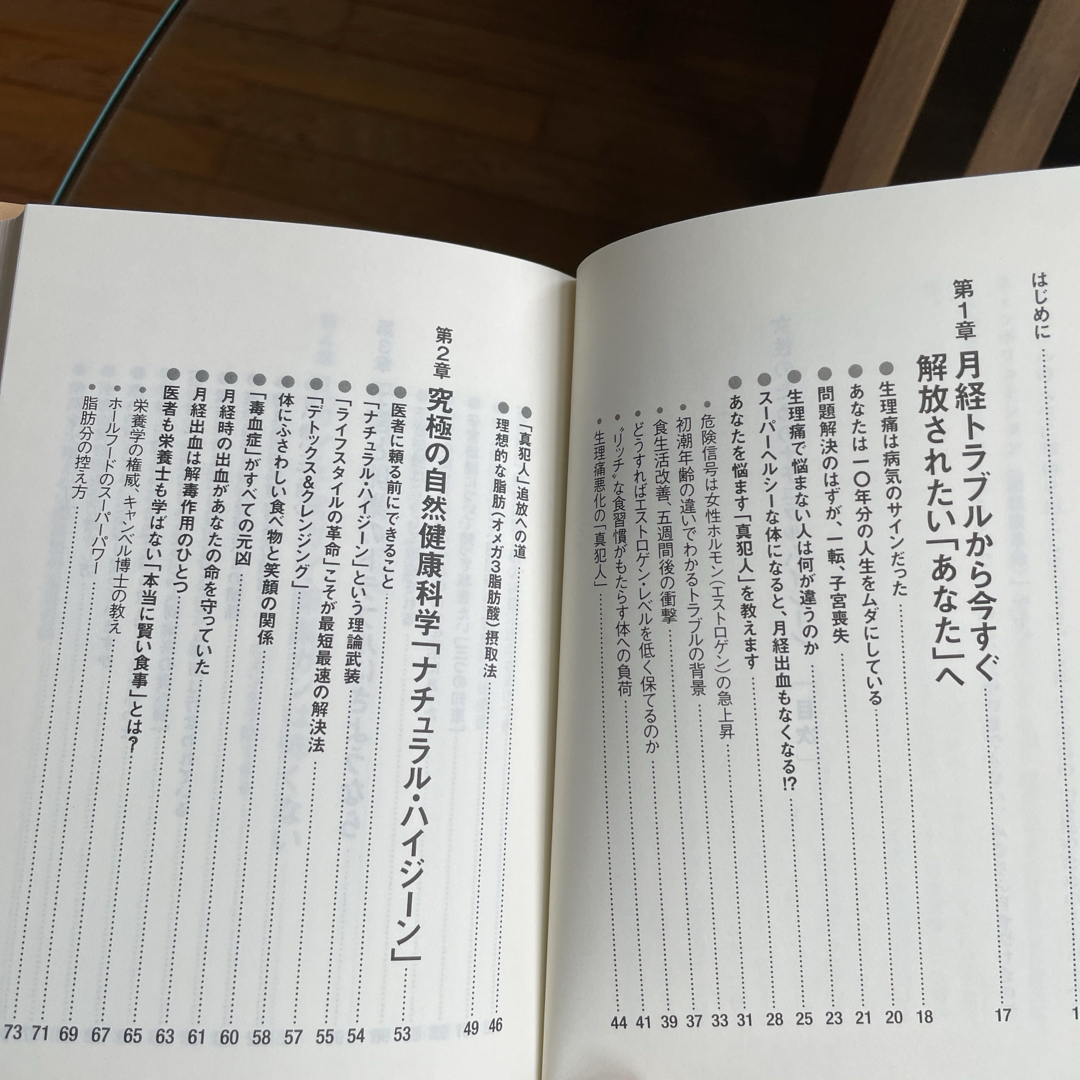 はじめに
第1章 月経トラブルから今すぐ
解放されたい「あなた」へ 17
●生理痛は病気のサインだった 18
●あなたは一〇年分の人生をムダにしている 20
●問題解決のはずが、一転、子宮喪失 21
●生理痛で悩まない人は何が違うのか 23
●スーパーヘルシーな体になると、月経出血もなくなる!? 25
●あなたを悩ます「真犯人」を教えます 28
・危険信号は女性ホルモン（エストロゲン）の急上昇 31
・初潮年齢の違いでわかるトラブルの背景 33
・食生活改善、五週間後の衝撃 37
・どうすればエストロゲン・レベルを低く保てるのか 39
・〝リッチ〟な食習慣がもたらす体への負荷 41
・生理痛悪化の「真犯人」 44
●「真犯人」追放への道 46
●理想的な脂肪（オメガ3脂肪酸）摂取法 49
第2章 究極の自然健康科学「ナチュラル・ハイジーン」 53
●医者に頼る前にできること 54
●「ナチュラル・ハイジーン」という理論武装 55
●「ライフスタイルの革命」こそが最短最速の解決法 57
●「デトックス&クレンジング」 58
●体にふさわしい食べ物と笑顔の関係 60
●「毒血症」がすべての元凶 61
●月経時の出血があなたの命を守っていた 63
●月経出血は解毒作用のひとつ 65
●医者も栄養士も学ばない「本当に賢い食事」とは? 67
・栄養学の権威、キャンベル博士の教え 69
・ホールフードのスーパーパワー 71
・脂肪分の控え方 73